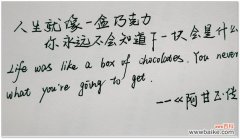 人生就像一盒巧克力
你永远不会知道下一块会是什么
Life was like a box of chocolates. You never
what you're going to get.
——《阿甘正传